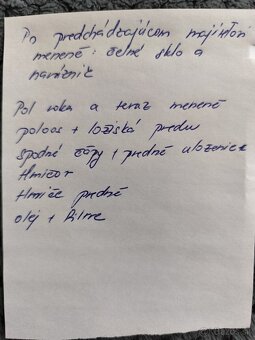 Po predchádzajúcom majiteľovi
menené: čelné sklo a
nárazník
Pol roka a teraz menené
poloos + ložiská predu
spodné čapy + predné uloženie
tlmičov
tlmiče predné
olej + filtre